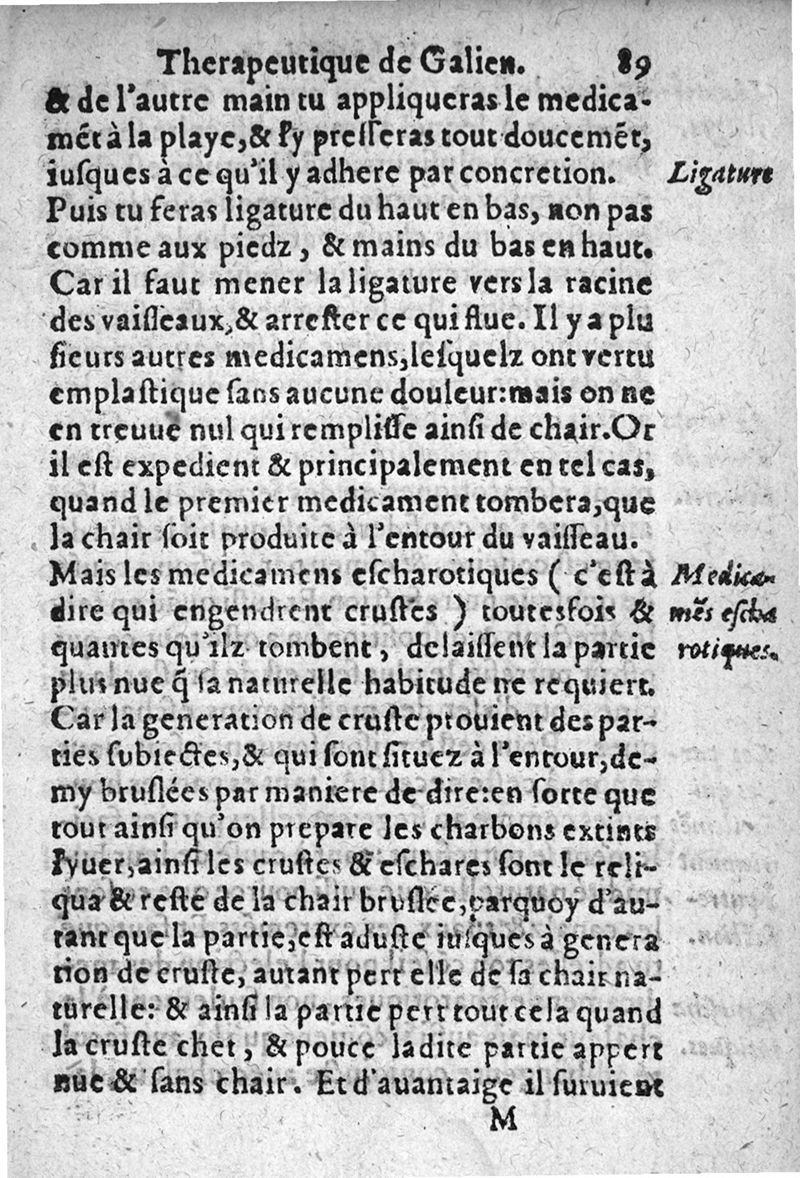 Therapeutique de Galien. 89
& de l'autre main tu appliqueras le medica-
mẽt à la playe,& l'y presseras tout doucemẽt,
iusques à ce qu'il y adhere par concretion.
Ligature
Puis tu feras ligature du haut en bas, non pas
comme aux piedz, & mains du bas en haut.
Car il faut mener la ligature vers la racine
des vaisseaux,& arrester ce qui flue. Il y a plu
sieurs autres medicamens,lesquelz ont vertu
emplastique sans aucune douleur:mais on ne
en treuue nul qui remplisse ainsi de chair.Or
il est expedient & principalement en tel cas,
quand le premier medicament tombera,que
la chair soit produite à l'entour du vaisseau.
Mais les medicamens escharotiques ( c'est à
dire qui engendrent crustes ) toutesfois &
quantes qu'ilz tombent, delaissent la partie
Medica-
mẽs escha
rotiques.
plus nue q̃ sa naturelle habitude ne requiert.
Car la generation de cruste prouient des par-
ties subiectes,& qui sont situez à l'entour,de-
my bruslées par maniere de dire:en sorte que
tout ainsi qu'on prepare les charbons extints
l'yuer,ainsi les crustes & eschares sont le reli-
qua & reste de la chair bruslée,parquoy d'au-
tant que la partie,est aduste iusques à genera
tion de cruste, autant pert elle de sa chair na-
turelle: & ainsi la partie pert tout cela quand
la cruste chet, & pource ladite partie appert
nue & sans chair. Et d'auantaige il suruient
M